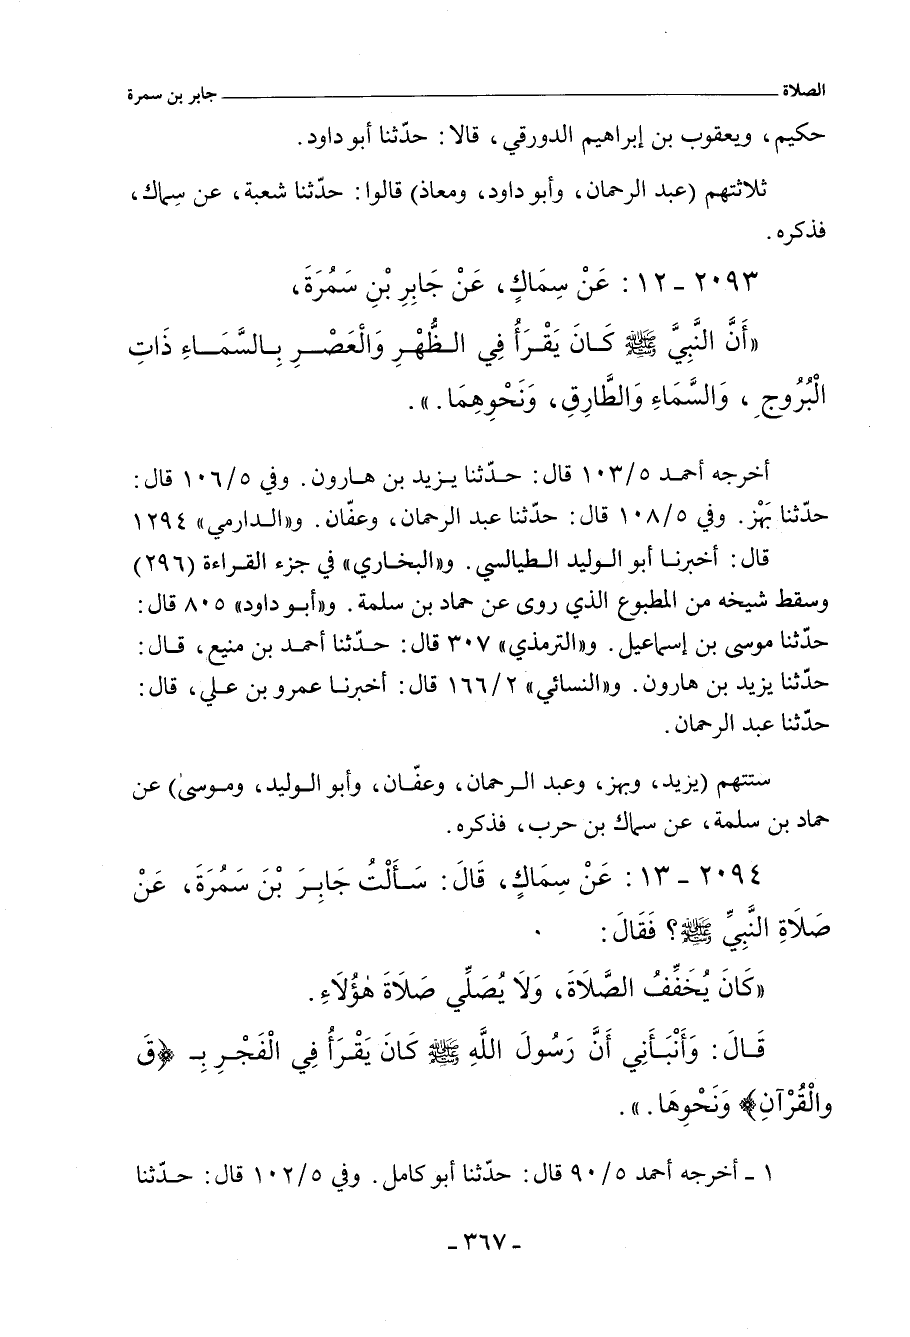 الصلاة ــــــــ جابر بن سمرة
حكيم، ويعقوب بن إبراهيم الدورقي، قالا: حدّثنا أبو داود.
ثلاثتهم (عبد الرحمان، وأبو داود، ومعاذ) قالوا: حدّثنا شعبة، عن سِماك،
فذكره.
٢٠٩٣ - ١٢: عَنْ سِمَاكٍ، عَنْ جَابِرِ بْنِ سَمُرَةَ،
«أَنَّ النَّبِيَّ ﷺ كَانَ يَقْرَأُ فِي الظُّهْرِ وَالْعَصْرِ بِالسَّمَاءِ ذَاتِ
الْبُرُوجِ، وَالسَّمَاءِ وَالطَّارِقِ، وَنَحْوِهِمَا.».
أخرجه أحمد ١٠٣/٥ قال: حدّثنا يزيد بن هارون. وفي ١٠٦/٥ قال:
حدّثنا بَهْز. وفي ١٠٨/٥ قال: حدّثنا عبد الرحمان، وعفّان. و«الدارمي» ١٢٩٤
قال: أخبرنا أبو الوليد الطيالسي. و«البخاري» في جزء القراءة (٢٩٦)
وسقط شيخه من المطبوع الذي روى عن حماد بن سلمة. و«أبو داود» ٨٠٥ قال:
حدّثنا موسى بن إسماعيل. و«الترمذي» ٣٠٧ قال: حدّثنا أحمد بن منيع، قال:
حدّثنا يزيد بن هارون. و«النسائي» ١٦٦/٢ قال: أخبرنا عمرو بن علي، قال:
حدّثنا عبد الرحمان.
ستتهم (يزيد، وبهز، وعبد الرحمان، وعفّان، وأبو الوليد، وموسىٰ) عن
حماد بن سلمة، عن سماك بن حرب، فذكره.
٢٠٩٤ - ١٣: عَنْ سِمَاكٍ، قَالَ: سَأَلْتُ جَابِرَ بْنَ سَمُرَةَ، عَنْ
صَلَاةِ النَّبِيِّ ﷺ؟ فَقَالَ:
«كَانَ يُخَفِّفُ الصَّلَاةَ، وَلَا يُصَلِّي صَلَاةَ هٰؤُلَاءِ.
قَالَ: وَأَنْبَأَنِي أَنَّ رَسُولَ اللَّهِ ﷺ كَانَ يَقْرَأُ فِي الْفَجْرِ بِـ ﴿قَ
والْقُرْآنِ﴾ وَنَحْوِهَا.».
١ - أخرجه أحمد ٩٠/٥ قال: حدّثنا أبو كامل. وفي ١٠٢/٥ قال: حدّثنا
- ٣٦٧ -